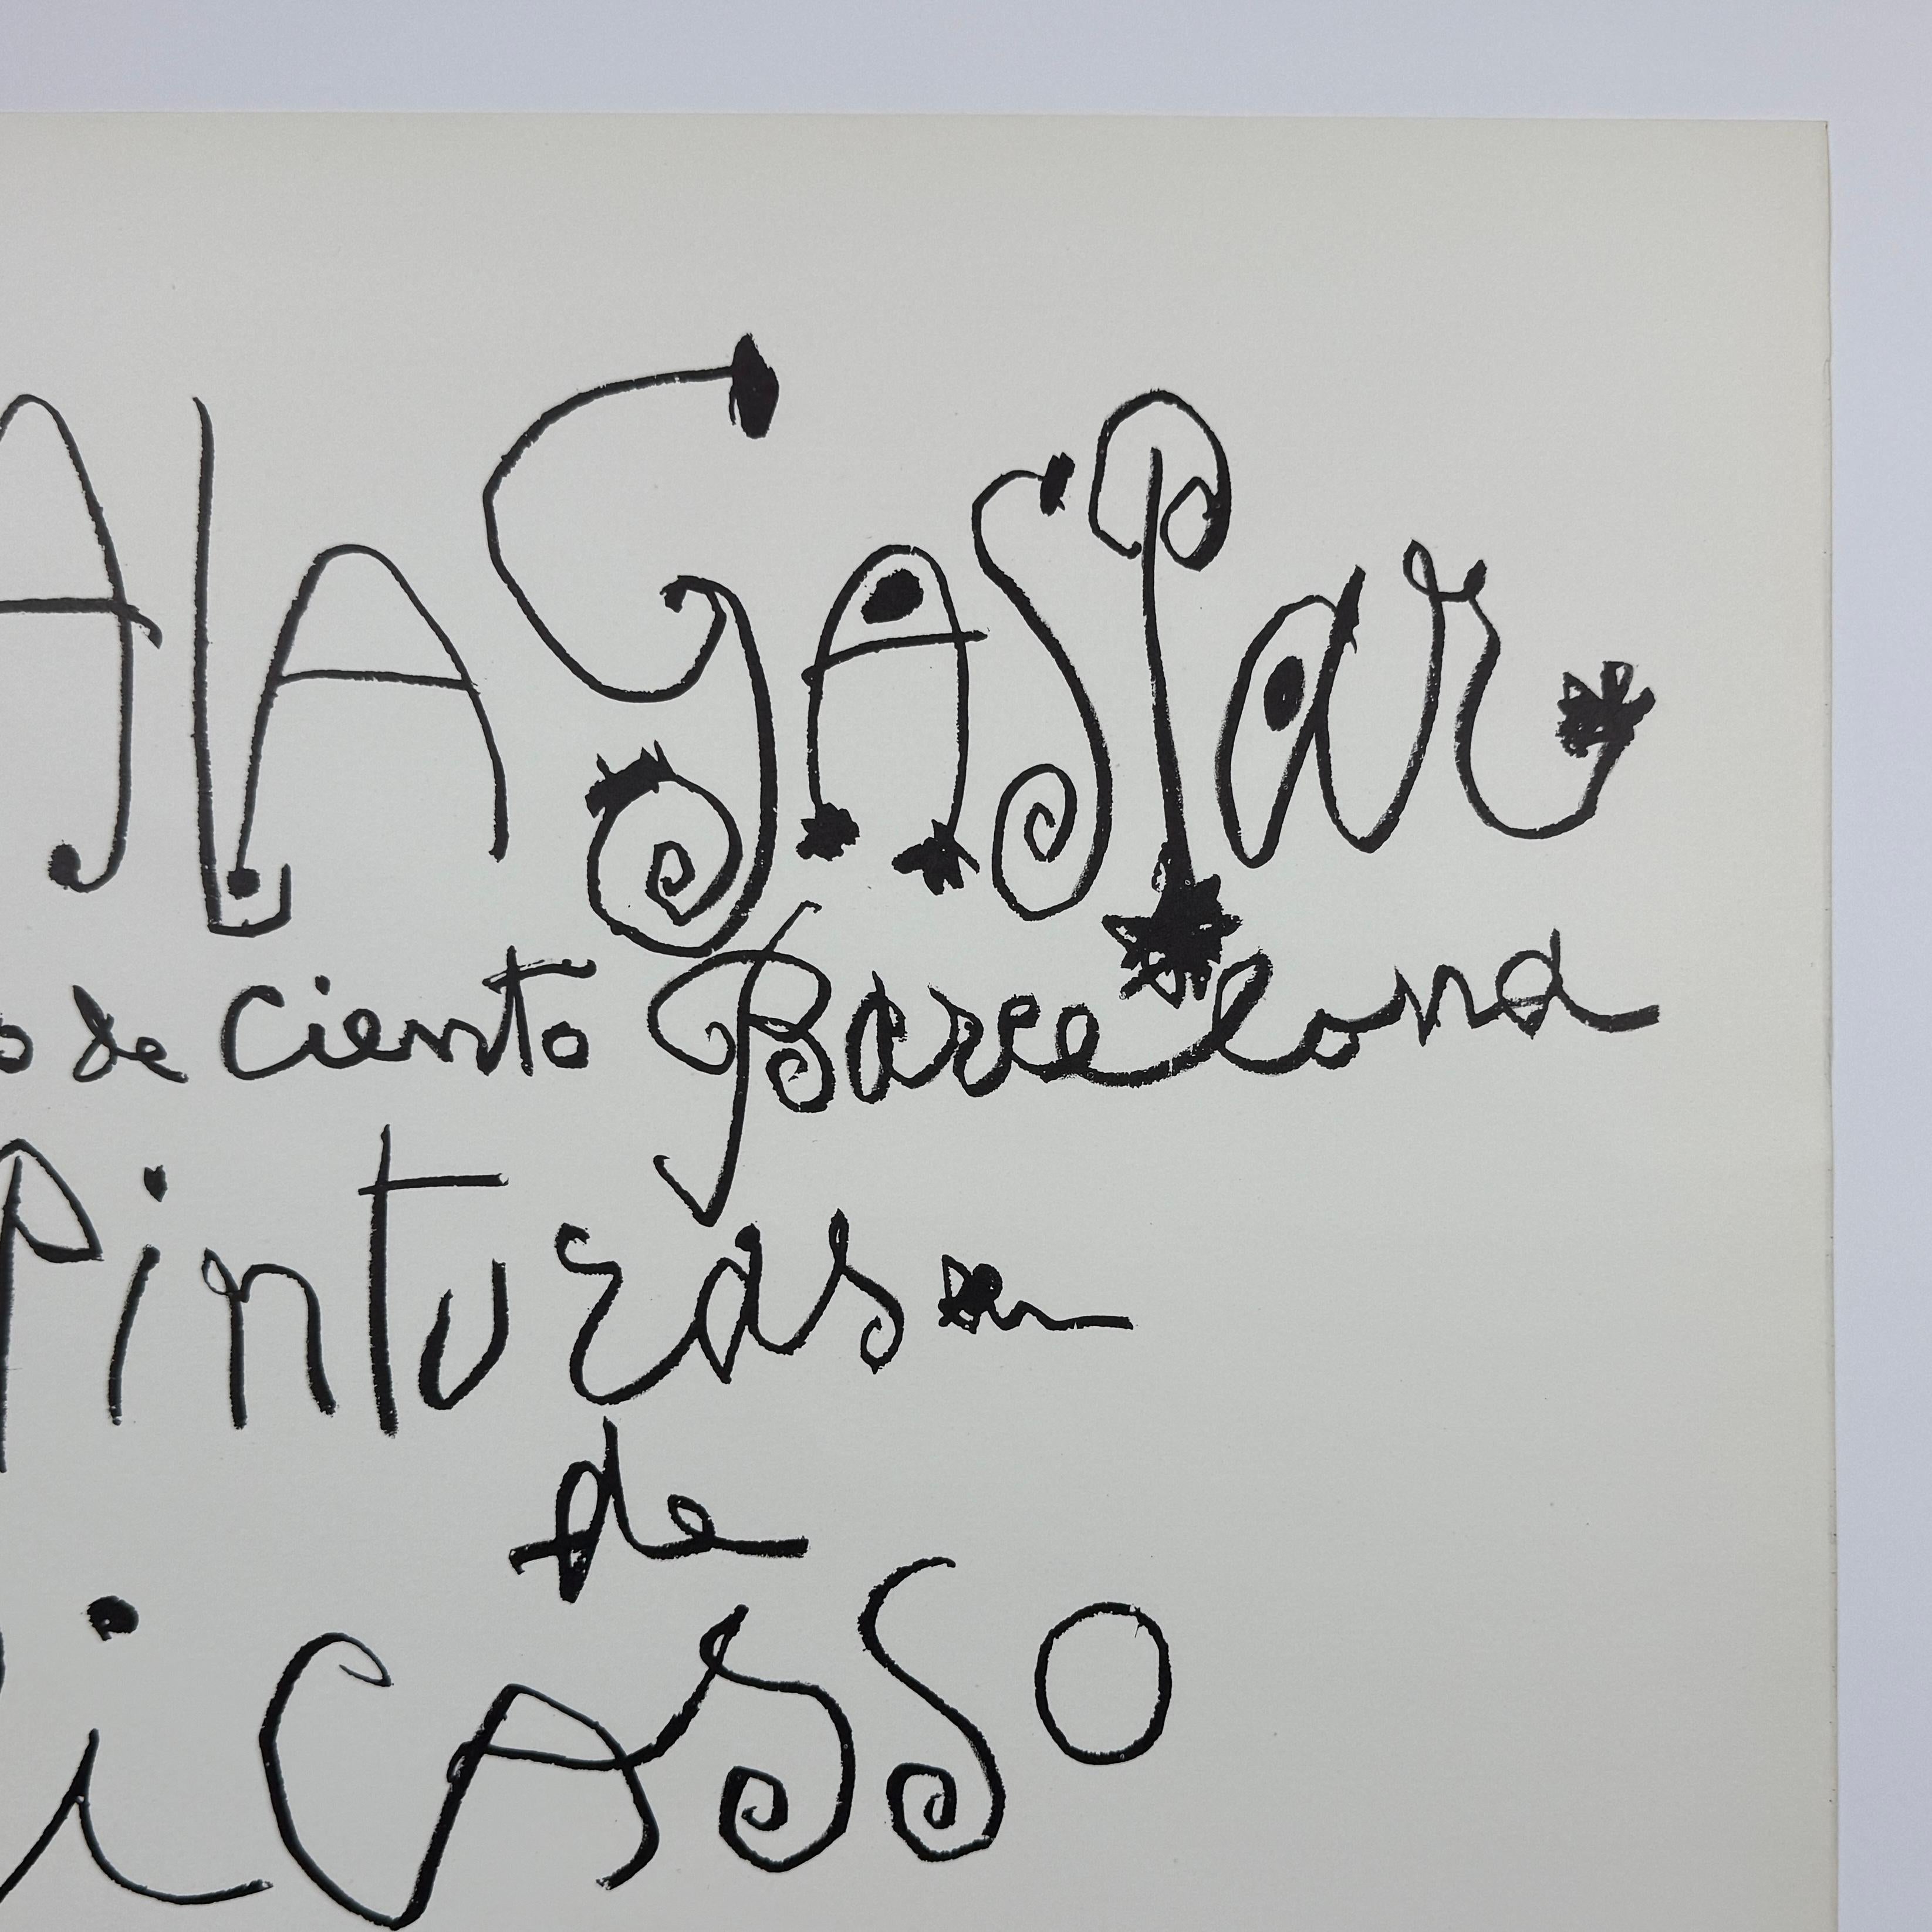 AlA GASPar
o de ciento Barcelona
Pinturas
de
PicASSO